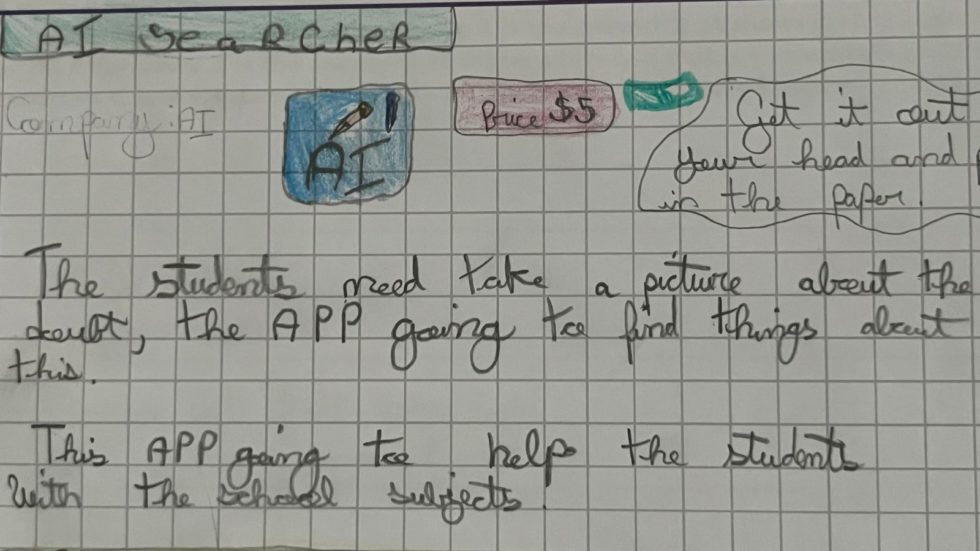 AI SeaRCheR
Company: AI
AI
Price $5
Get it out
your head and
in the paper.
The students need take a picture about the
doubt, the APP going to find things about
this.
This APP going to help the students
with the school subjects.